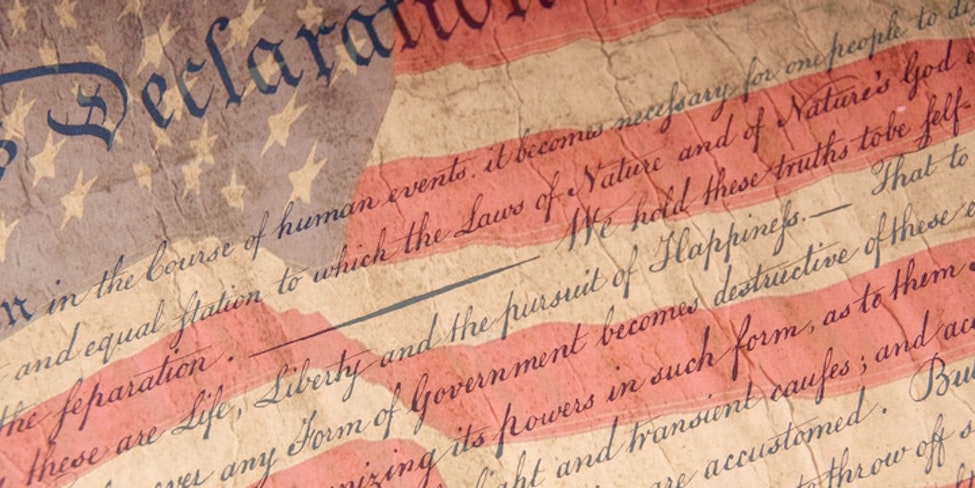 Declaration
in the Course of human events. it becomes neceſsary for one people to di
and equal ſtation to which the Laws of Nature and of Nature's God e
the ſeparation. — We hold these truths to be ſelf-
these are Life, Liberty and the pursuit of Happineſs. — That to
ver any Form of Government becomes destructive of these e
nizing its powers in such form, as to them s
light and transient cauſes; and acc
are accustomed. Bu
to throw off s